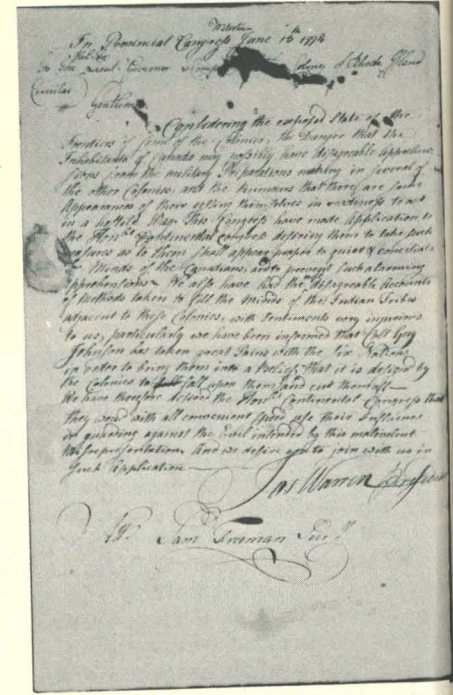 Watertown
In Provincial Congress June 1775
To the Governor & Company of Rhode Island
Circular
Gentlemen
Considering the exposed State of the
Frontiers of some of the Colonies, the Danger that the
Inhabitants of Canada may possibly have disagreable Apprehen
sions from the military Preparations making in several of
the other Colonies, and the Rumours that there are some
Appearances of their getting themselves in readiness to act
in a hostile Way. This Congress have made Application to
the Honble Continental Congress desiring them to take such
Measures as to them shall appear proper to quiet & conciliate
the Minds of the Canadians, and to prevent such alarming
Apprehensions. We also have had the disagreable Accounts
of Methods taken to fill the Minds of the Indian Tribes
adjacent to these Colonies, with Sentiments very injurious
to us; particularly we have been informed that Coll Guy
Johnson has taken great Pains with the Six Nations
in order to bring them into a Belief, that it is designed by
the Colonies to fall upon them and cut them off—
We have therefore desired the Honble Continental Congress that
they woud with all convenient Speed use their Influence
in guarding against the Evil intended by this malevolent
Misrepresentation, And we desire you to join with us in
such Application—
Jas Warren President
Attr Saml Freeman Secry